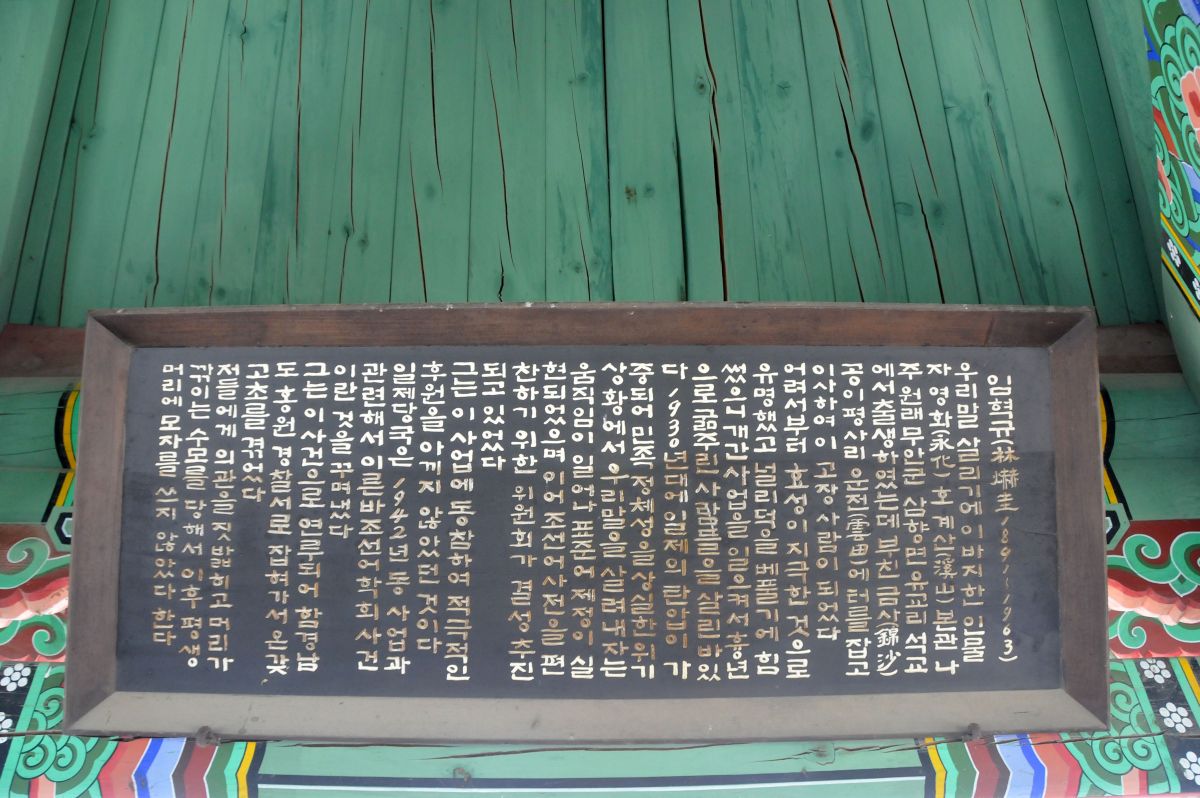 임혁규(林爀圭, 1891~1963)
우리말 살리기에 이바지한 인물
자 영화(永化) 호 계산(溪山) 본관 나
주 원래 무안군 삼향면 유교리 석교
에서 출생하였는데 부친 금사(錦沙)
공이 평사리 운전(雲田)에 터를 잡고
이사하여 이 고장 사람이 되었다
어려서부터 효성이 지극한 것으로
유명했고 널리 덕을 베풀기에 힘
썼으니 개간사업을 일으켜서 흉년
으로 굶주린 사람들을 살린 바 있
다 1930년대에 일제의 탄압이 가
중되어 민족 정체성을 상실한 위기
상황에서 우리말을 살려내자는
움직임이 일어나 표준어 제정이 실
현되었으며 이어 조선어사전을 편
찬하기 위한 위원회가 결성 추진
되고 있었다
그는 이 사업에 동참하여 적극적인
후원을 아끼지 않았던 것이다
일제당국은 1942년 동 사업과
관련해서 이른바 조선어학회 사건
이란 것을 꾸며냈다
그는 이 사건으로 연루되어 함경남
도 홍원 경찰서로 잡혀가서 온갖
고초를 겪었다
저들에게 의관을 짓밟히고 머리가
깎이는 수모를 당해서 이후 평생
머리에 모자를 쓰지 않았다 한다